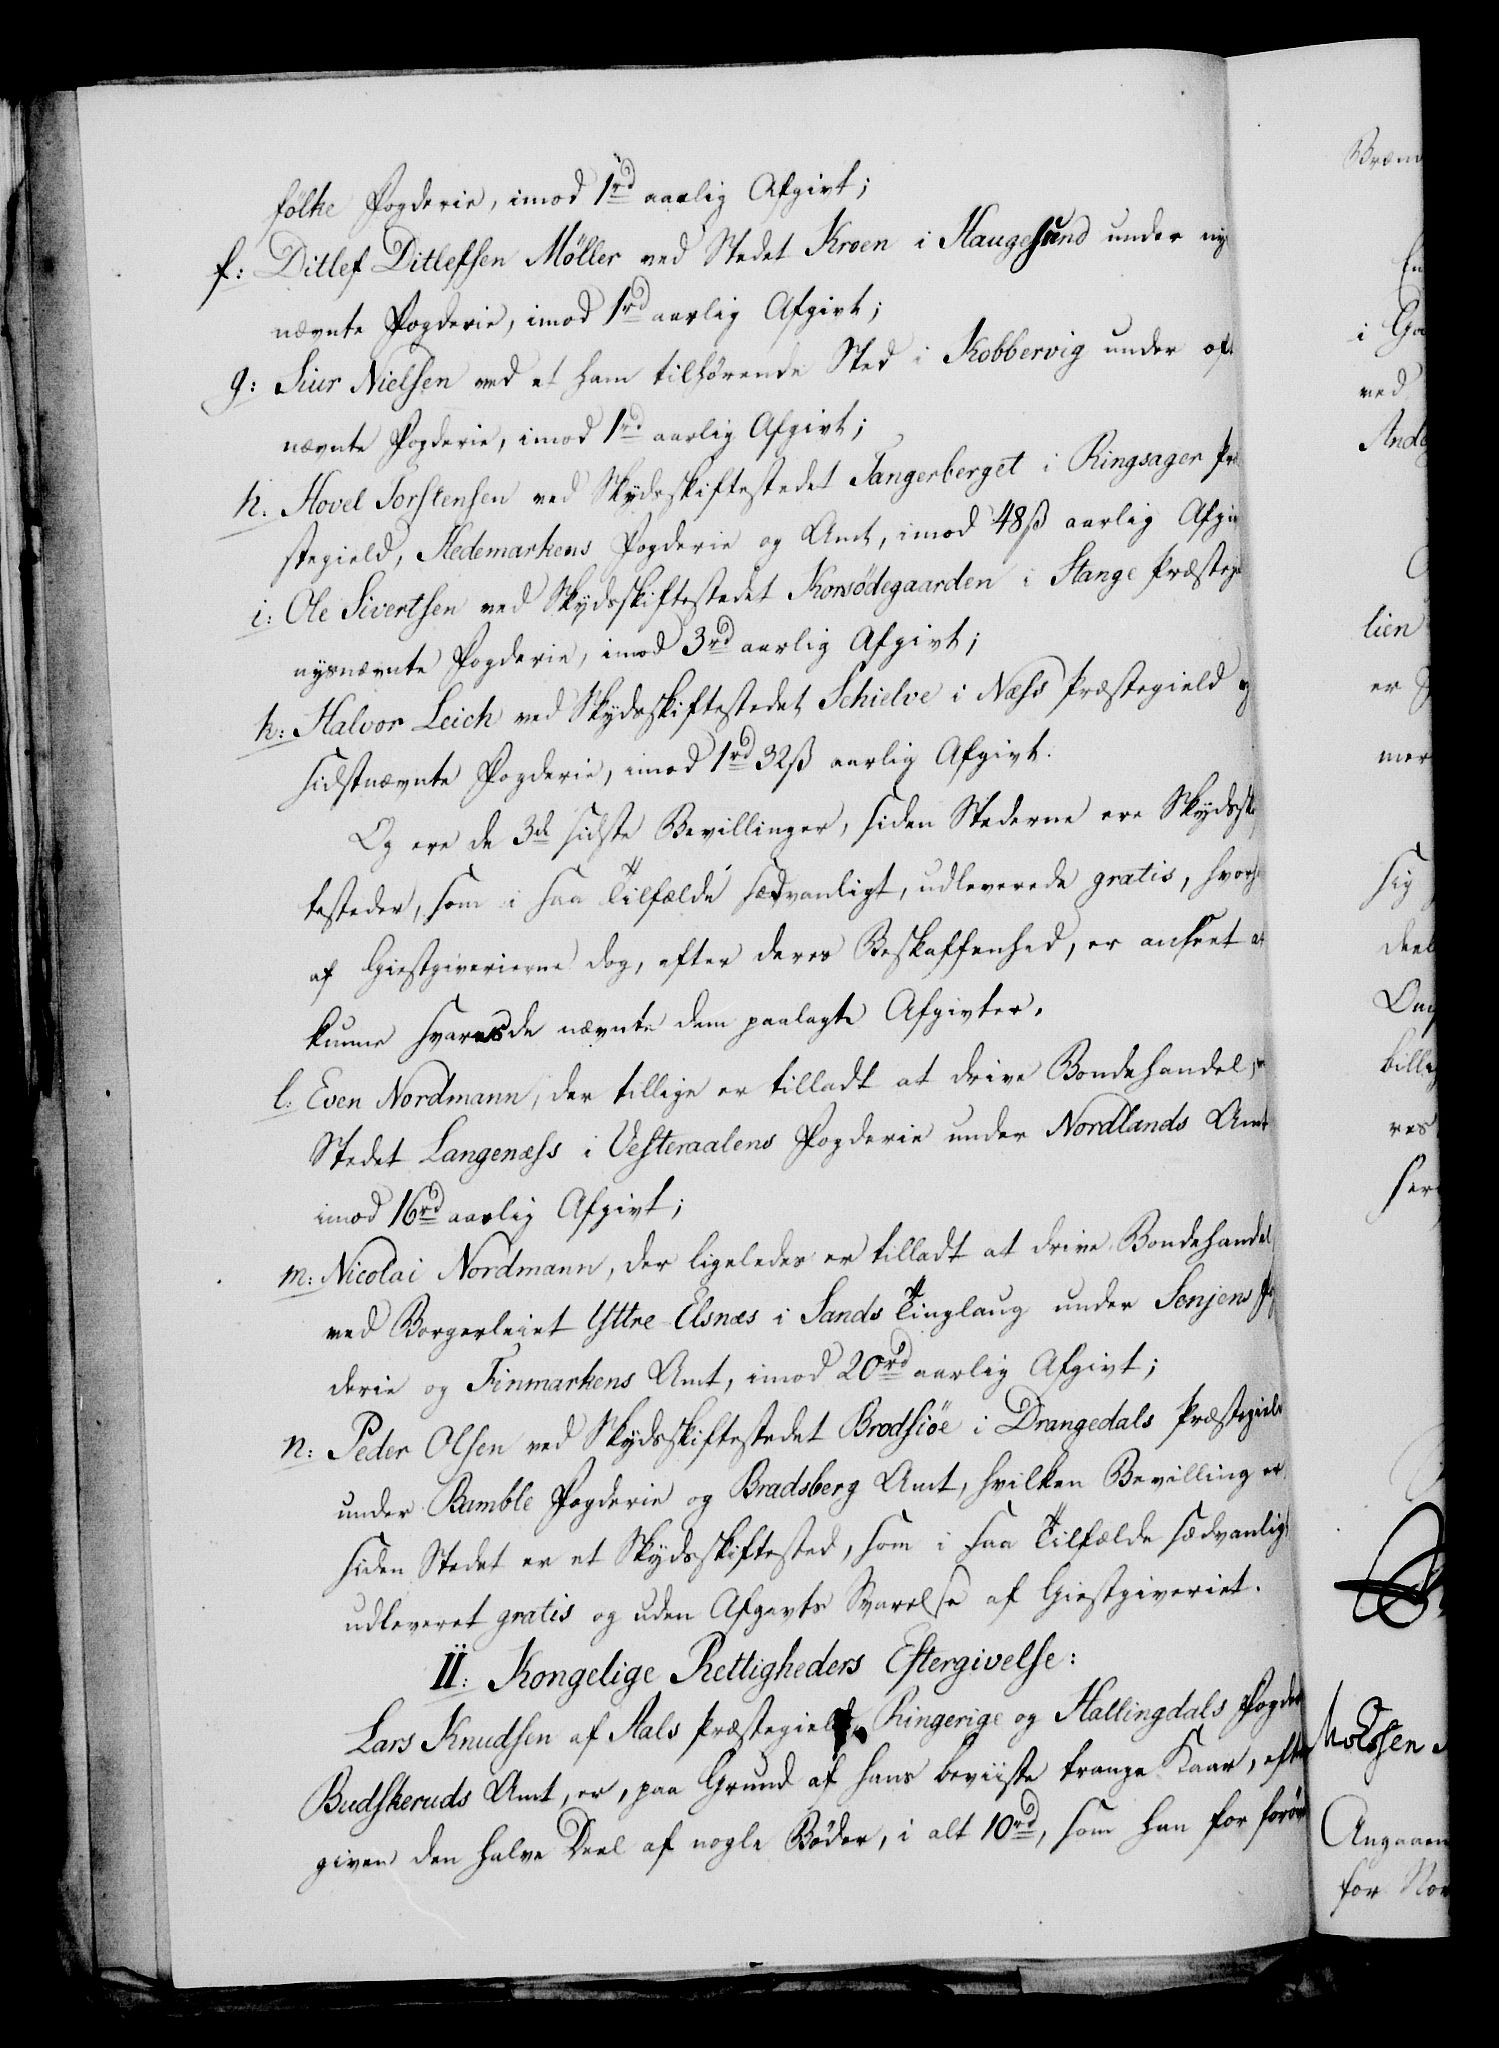 følke Fogderie, imod 1rd aarlig Afgivt;
f: Ditlef Ditlefsen Möller ved Stedet Kroen i Haugesund under nys
nævnte Fogderie, imod 1rd aarlig Afgivt;
g: Siur Nielsen ved et ham tilhørende Sted i Kobbervig under oft
nævnte Fogderie, imod 1rd aarlig Afgivt;
h. Hovel Torstensen ved Skydsskiftestedet Tangerberget i Ringsager Præ
stegield, Hedemarkens Fogderie og Amt, imod 48ß aarlig Afgiv
i: Ole Sivertsen ved Skydsskiftestedet Korsödegaarden i Stange Præsteg
nysnævnte Fogderie, imod 3rd aarlig Afgivt;
k: Halvor Leich ved Skydsskiftestedet Schielve i Næss Præstegield og
sidstnævnte Fogderie, imod 1rd 32ß aarlig Afgivt.
Og ere de 3de sidste Bevillinger, siden Stederne ere Skydsskif
testeder, som i saa Tilfælde sædvanligt, udleverede gratis, hvor
af Giestgiverierne dog, efter deres Beskaffenhed, er anseet at
kunne svares de nævnte dem paalagte Afgivter.
l: Even Nordmann, der tillige er tilladt at drive Bondehandel,
Stedet Langenæss i Vesteraalens Fogderie under Nordlands Amt
imod 16rd aarlig Afgivt;
m: Nicolai Nordmann, der ligeledes er tilladt at drive Bondehandel
ved Borgerleiet Yttre-Elsnæs i Sands Tinglaug under Senjens Fog
derie og Finmarkens Amt, imod 20rd aarlig Afgivt;
n: Peder Olsen ved Skydsskiftestedet Brødsiöe i Drangedals Præstegield
under Bamble Fogderie og Bradsberg Amt, hvilken Bevilling er,
siden Stedet er et Skydsskiftested, som i saa Tilfælde sædvanligt
udleveret gratis og uden Afgivts Svarelse af Giestgiveriet.
II: Kongelige Rettigheders Eftergivelse:
Lars Knudsen af Aals Præstegield, Ringerige og Hallingdals Fogder
Budskeruds Amt, er, paa Grund af hans beviiste trange Kaar, efter
given den halve Deel af nogle Bøder, i alt 10rd, som han for
Brem
En
i Ga
ved
Ande
lien
er
mer
sig
deel
billig
res
ser
holdsen
Angaaen
for Nor